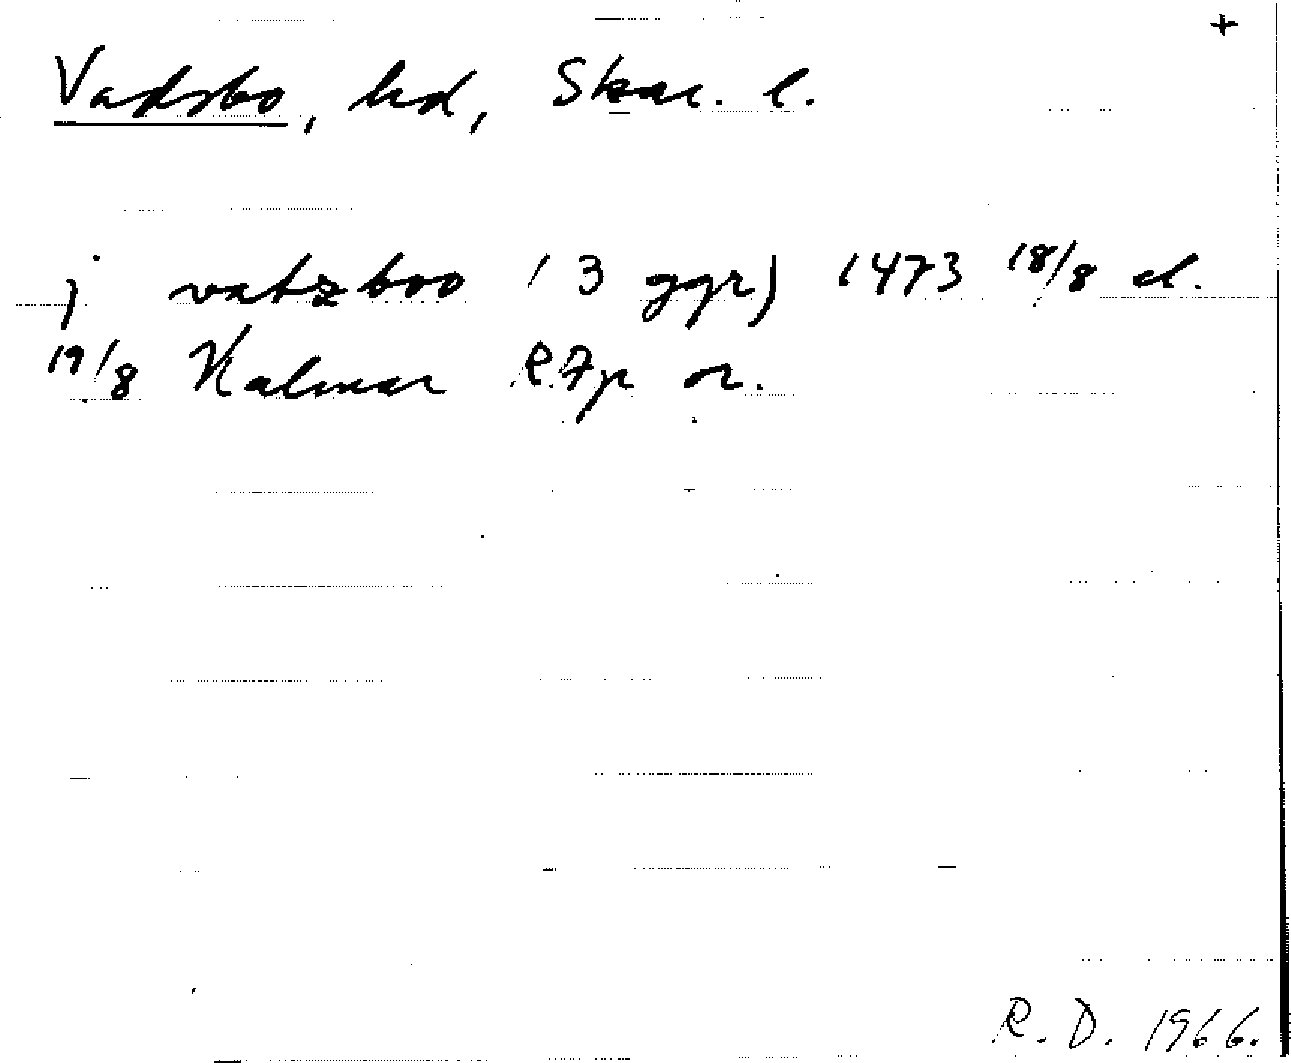 +
Vadsbo, hd, Skar. l.
j vatzboo (3 ggr) 1473 18/8 el.
19/8 Kalmar RAp or.
R. D. 1966.